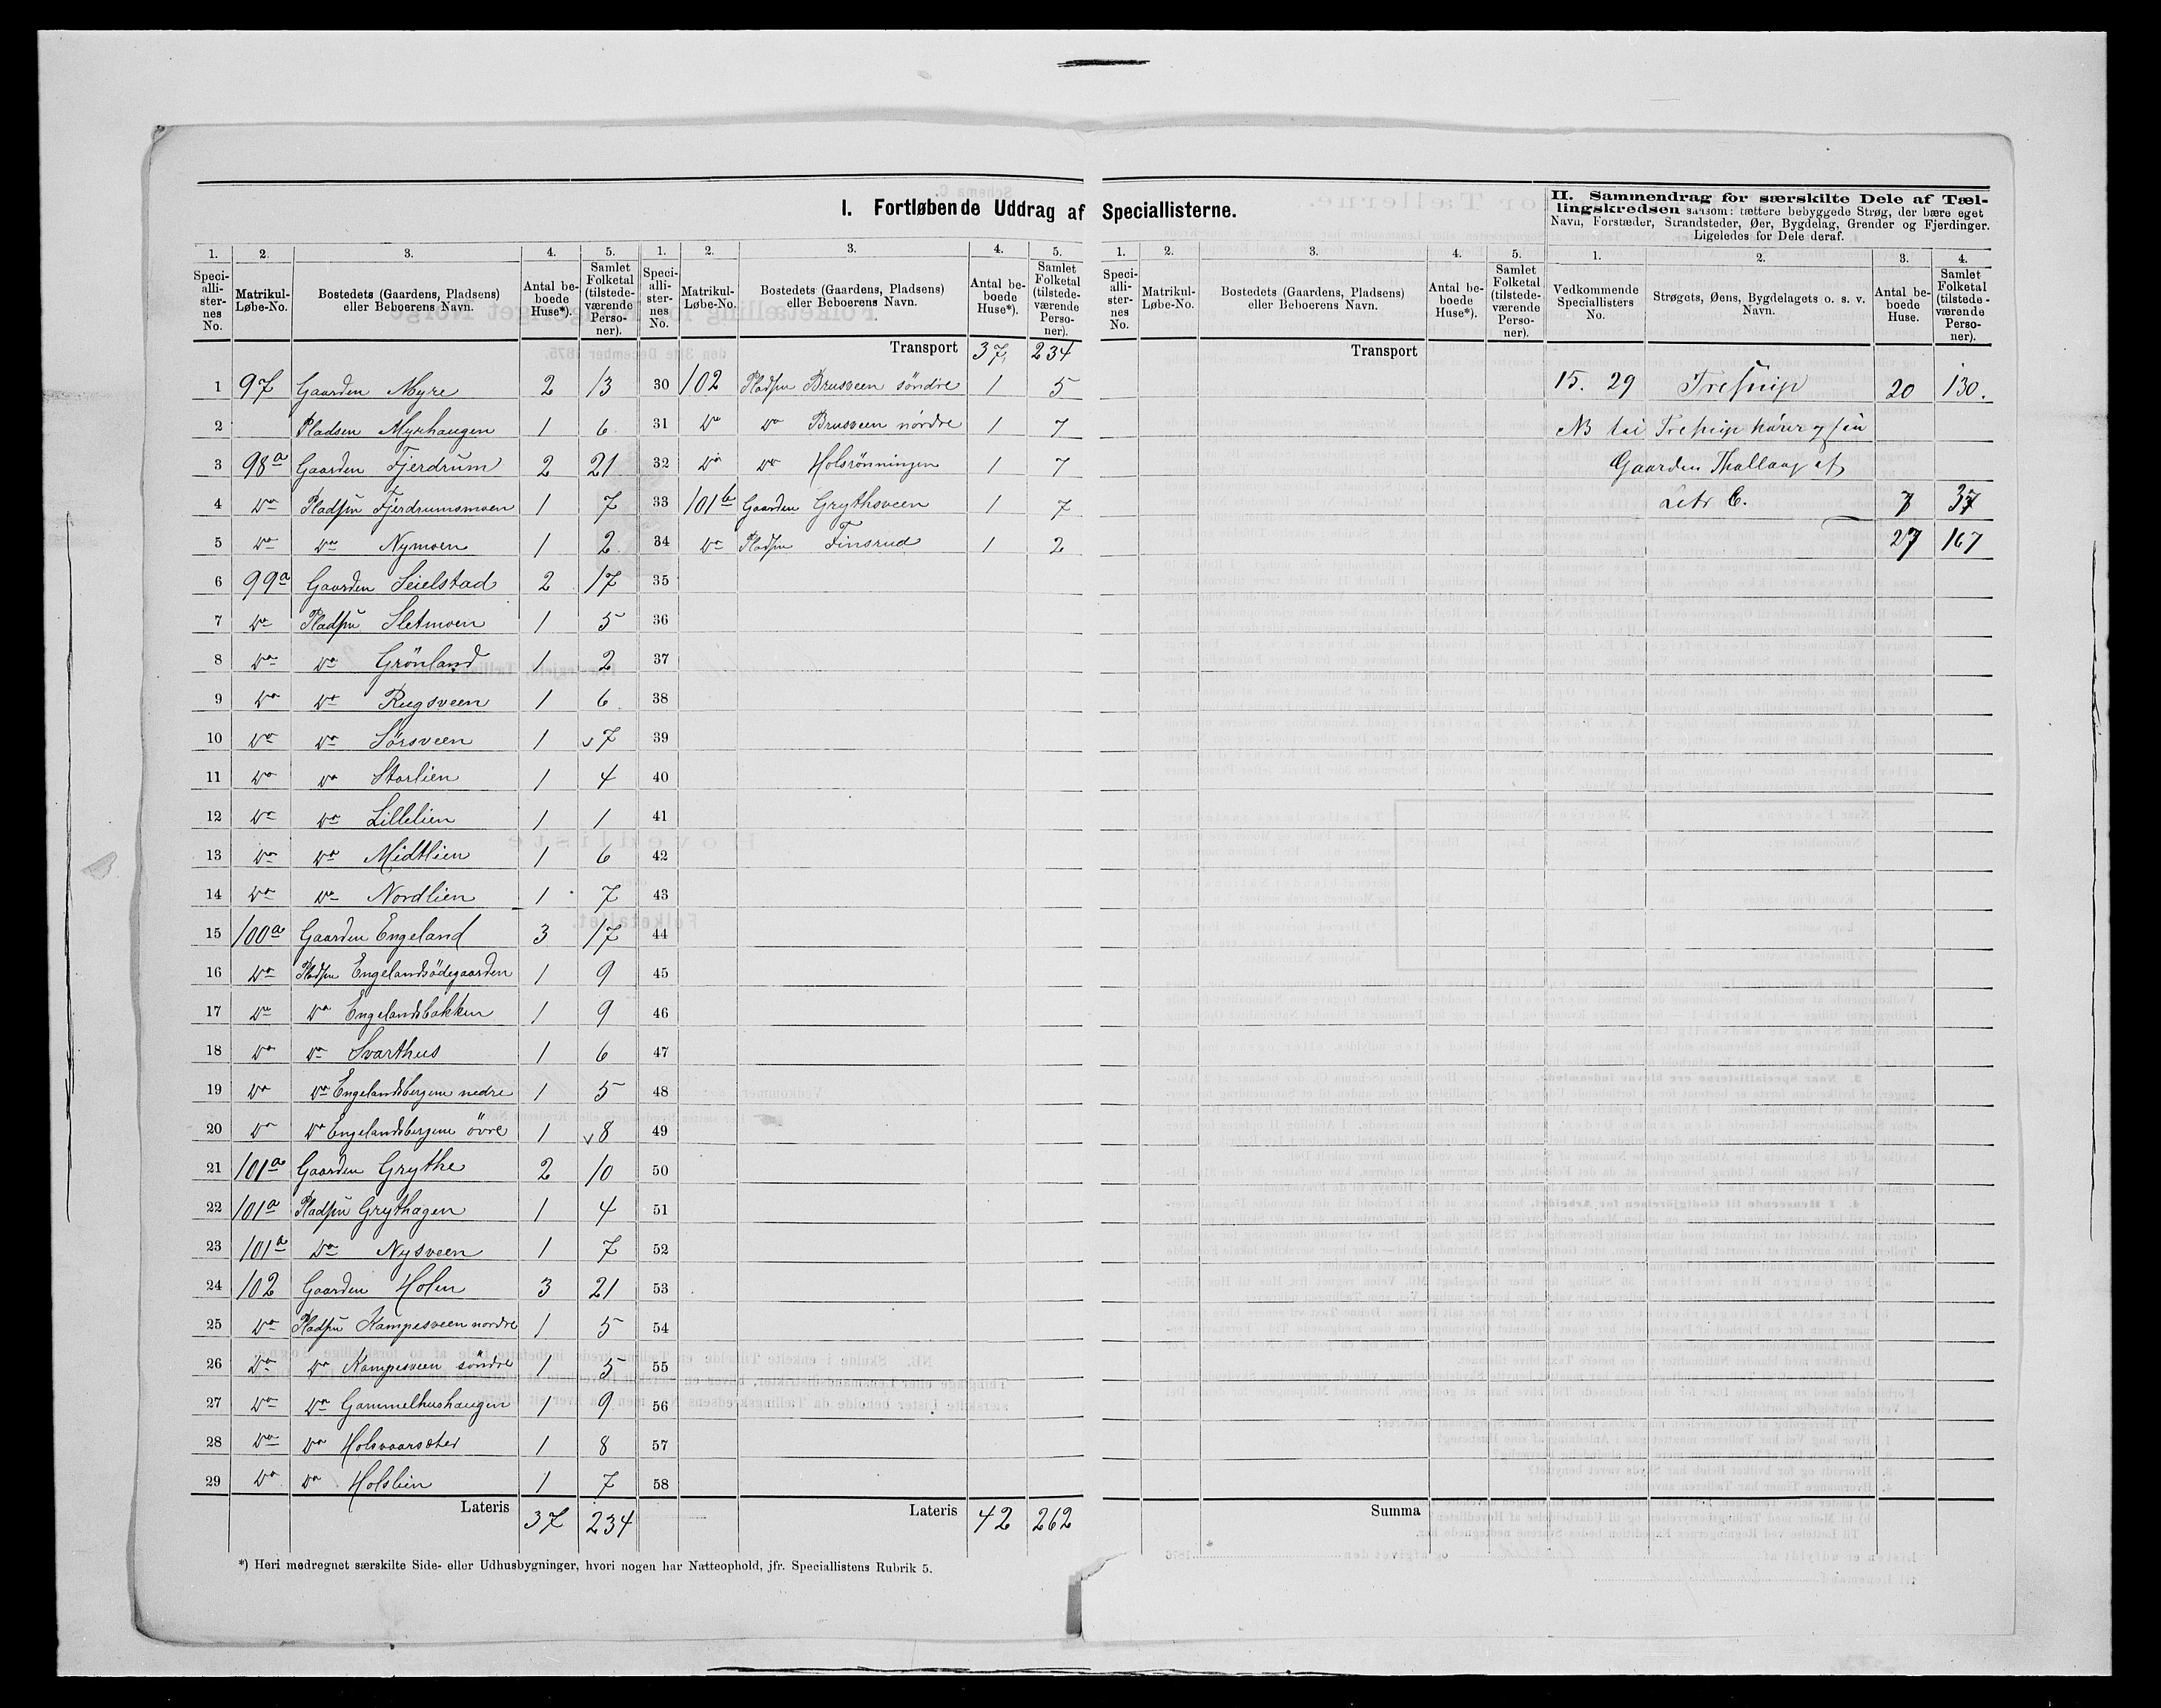 I. Fortløbende Uddrag af Speciallisterne.
1. 2. 3. 4. 5.
Speciallisternes No. Matrikul-Løbe-No. Bostedets (Gaardens, Pladsens) eller Beboerens Navn. Antal beboede Huse*). Samlet Folketal (tilstedeværende Personer).
1 97 Gaarden Myre 2 13
2 Pladsen Myrhaugen 1 6
3 98a Gaarden Fjerdrum 2 21
4 Do Pladsen Fjerdrumsmoen 1 7
5 Do Do Nymoen 1 2
6 99a Gaarden Seielstad 2 17
7 Do Pladsen Sletmoen 1 5
8 Do Do Grönland 1 2
9 Do Do Rugsveen 1 6
10 Do Do Sörsveen 1 7
11 Do Do Storlien 1 4
12 Do Do Lillelien 1 1
13 Do Do Midtlien 1 6
14 Do Do Nordlien 1 7
15 100a Gaarden Engeland 3 17
16 Do Pladsen Engelandsödegaarden 1 9
17 Do Do Engelandsbakken 1 9
18 Do Do Svarthus 1 6
19 Do Do Engelandsbergene nedre 1 5
20 Do Do Engelandsbergene övre 1 8
21 101a Gaarden Grythe 2 10
22 101a Pladsen Grythagen 1 4
23 101a Do Nysveen 1 7
24 102 Gaarden Holen 3 21
25 Do Pladsen Kampesveen nordre 1 5
26 Do Do Kampesveen söndre 1 5
27 Do Do Gammelhushaugen 1 9
28 Do Do Holsvaarsæter 1 8
29 Do Do Holslien 1 7
Lateris 37 234
*) Heri medregnet særskilte Side- eller Udhusbygninger, hvori nogen har Natteophold, jfr. Speciallistens Rubrik 5.
1. 2. 3. 4. 5.
Speciallisternes No. Matrikul-Løbe-No. Bostedets (Gaardens, Pladsens) eller Beboerens Navn. Antal beboede Huse*). Samlet Folketal (tilstedeværende Personer).
Transport 37 234
30 102 Pladsen Brusveen söndre 1 5
31 Do Do Brusveen nordre 1 7
32 Do Do Holsrönningen 1 7
33 101b Gaarden Grythsveen 1 7
34 Do Pladsen Finsrud 1 2
35
36
37
38
39
40
41
42
43
44
45
46
47
48
49
50
51
52
53
54
55
56
57
58
Lateris 42 262
1. 2. 3. 4. 5.
Speciallisternes No. Matrikul-Løbe-No. Bostedets (Gaardens, Pladsens) eller Beboerens Navn. Antal beboede Huse*). Samlet Folketal (tilstedeværende Personer).
Transport
Summa
II. Sammendrag for særskilte Dele af Tæl-
lingskredsen saasom: tættere bebyggede Strøg, der bære eget
Navn, Forstæder, Strandsteder, Øer, Bygdelag, Grender og Fjerdinger.
Ligeledes for Dele deraf.
1. 2. 3. 4.
Vedkommende Speciallisters No. Strøgets, Øens, Bygdelagets o. s. v. Navn. Antal beboede Huse. Samlet Folketal (tilstedeværende Personer).
15. 29 20 130.
NB til hører
Gaarden af
Litr C. 7 37
27 167